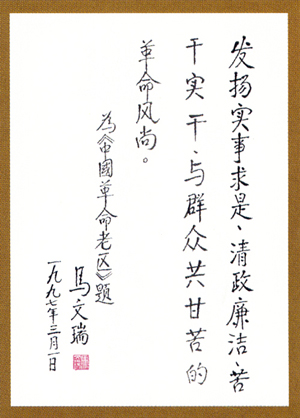 发扬实事求是、清政廉洁、苦
干实干、与群众共甘苦的
革命风尚。
为《中國革命老区》题
馬文瑞
一九九七年三月一日